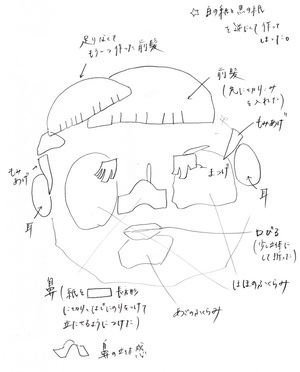 ☆ 白の紙と黒の紙
を逆にして作って
しまった。
足りなくて
もう一つ作った前髪
前髪
(先に切りこみ
を入れた)
もみあげ
もみ
あげ
まつげ
耳
耳
口びる
(少し立体に
して折った)
ほほのふくらみ
あごのふくらみ
鼻
(紙を 長方形
に切り、はじにのりをつけて
立たせるようにつけた)
鼻の立体感